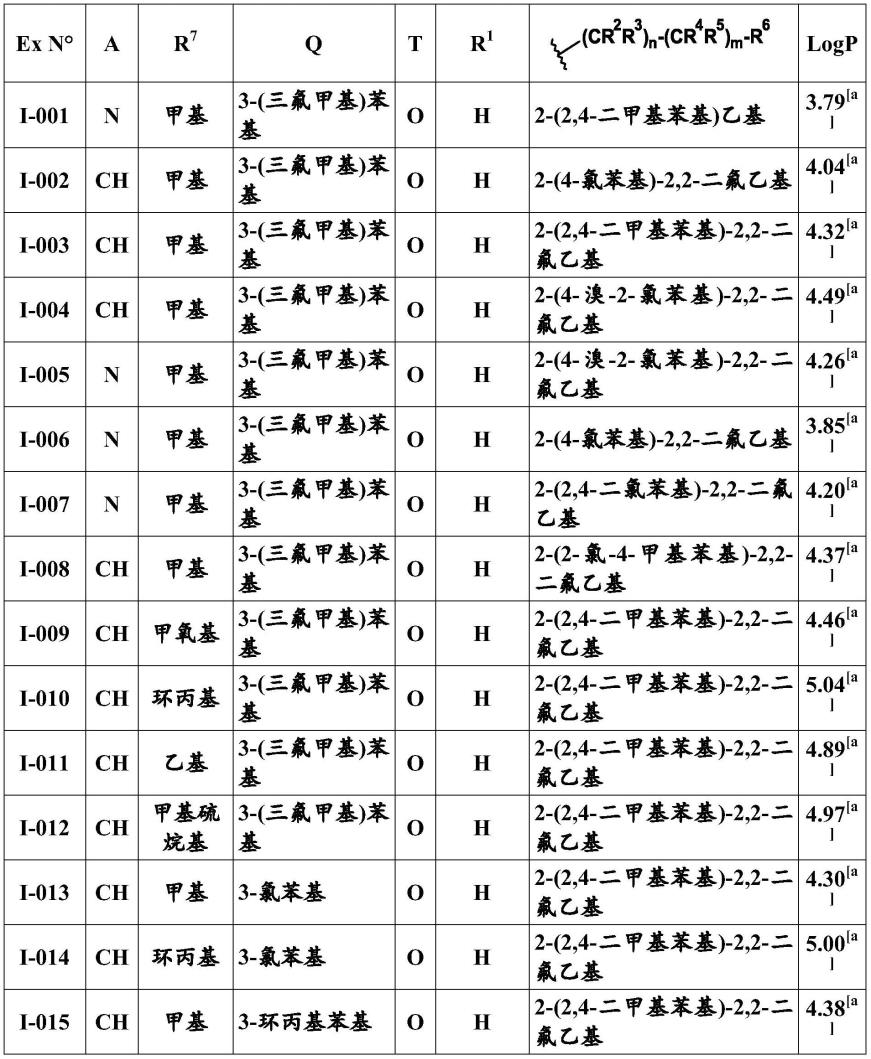 Ex N° A R⁷ Q T R¹ (CR²R³)n-(CR⁴R⁵)m-R⁶ LogP
I-001 N 甲基 3-(三氟甲基)苯基 O H 2-(2,4-二甲基苯基)乙基 3.79[a]
I-002 CH 甲基 3-(三氟甲基)苯基 O H 2-(4-氯苯基)-2,2-二氟乙基 4.04[a]
I-003 CH 甲基 3-(三氟甲基)苯基 O H 2-(2,4-二甲基苯基)-2,2-二氟乙基 4.32[a]
I-004 CH 甲基 3-(三氟甲基)苯基 O H 2-(4-溴-2-氯苯基)-2,2-二氟乙基 4.49[a]
I-005 N 甲基 3-(三氟甲基)苯基 O H 2-(4-溴-2-氯苯基)-2,2-二氟乙基 4.26[a]
I-006 N 甲基 3-(三氟甲基)苯基 O H 2-(4-氯苯基)-2,2-二氟乙基 3.85[a]
I-007 N 甲基 3-(三氟甲基)苯基 O H 2-(2,4-二氯苯基)-2,2-二氟乙基 4.20[a]
I-008 CH 甲基 3-(三氟甲基)苯基 O H 2-(2-氯-4-甲基苯基)-2,2-二氟乙基 4.37[a]
I-009 CH 甲氧基 3-(三氟甲基)苯基 O H 2-(2,4-二甲基苯基)-2,2-二氟乙基 4.46[a]
I-010 CH 环丙基 3-(三氟甲基)苯基 O H 2-(2,4-二甲基苯基)-2,2-二氟乙基 5.04[a]
I-011 CH 乙基 3-(三氟甲基)苯基 O H 2-(2,4-二甲基苯基)-2,2-二氟乙基 4.89[a]
I-012 CH 甲基硫烷基 3-(三氟甲基)苯基 O H 2-(2,4-二甲基苯基)-2,2-二氟乙基 4.97[a]
I-013 CH 甲基 3-氯苯基 O H 2-(2,4-二甲基苯基)-2,2-二氟乙基 4.30[a]
I-014 CH 环丙基 3-氯苯基 O H 2-(2,4-二甲基苯基)-2,2-二氟乙基 5.00[a]
I-015 CH 甲基 3-环丙基苯基 O H 2-(2,4-二甲基苯基)-2,2-二氟乙基 4.38[a]